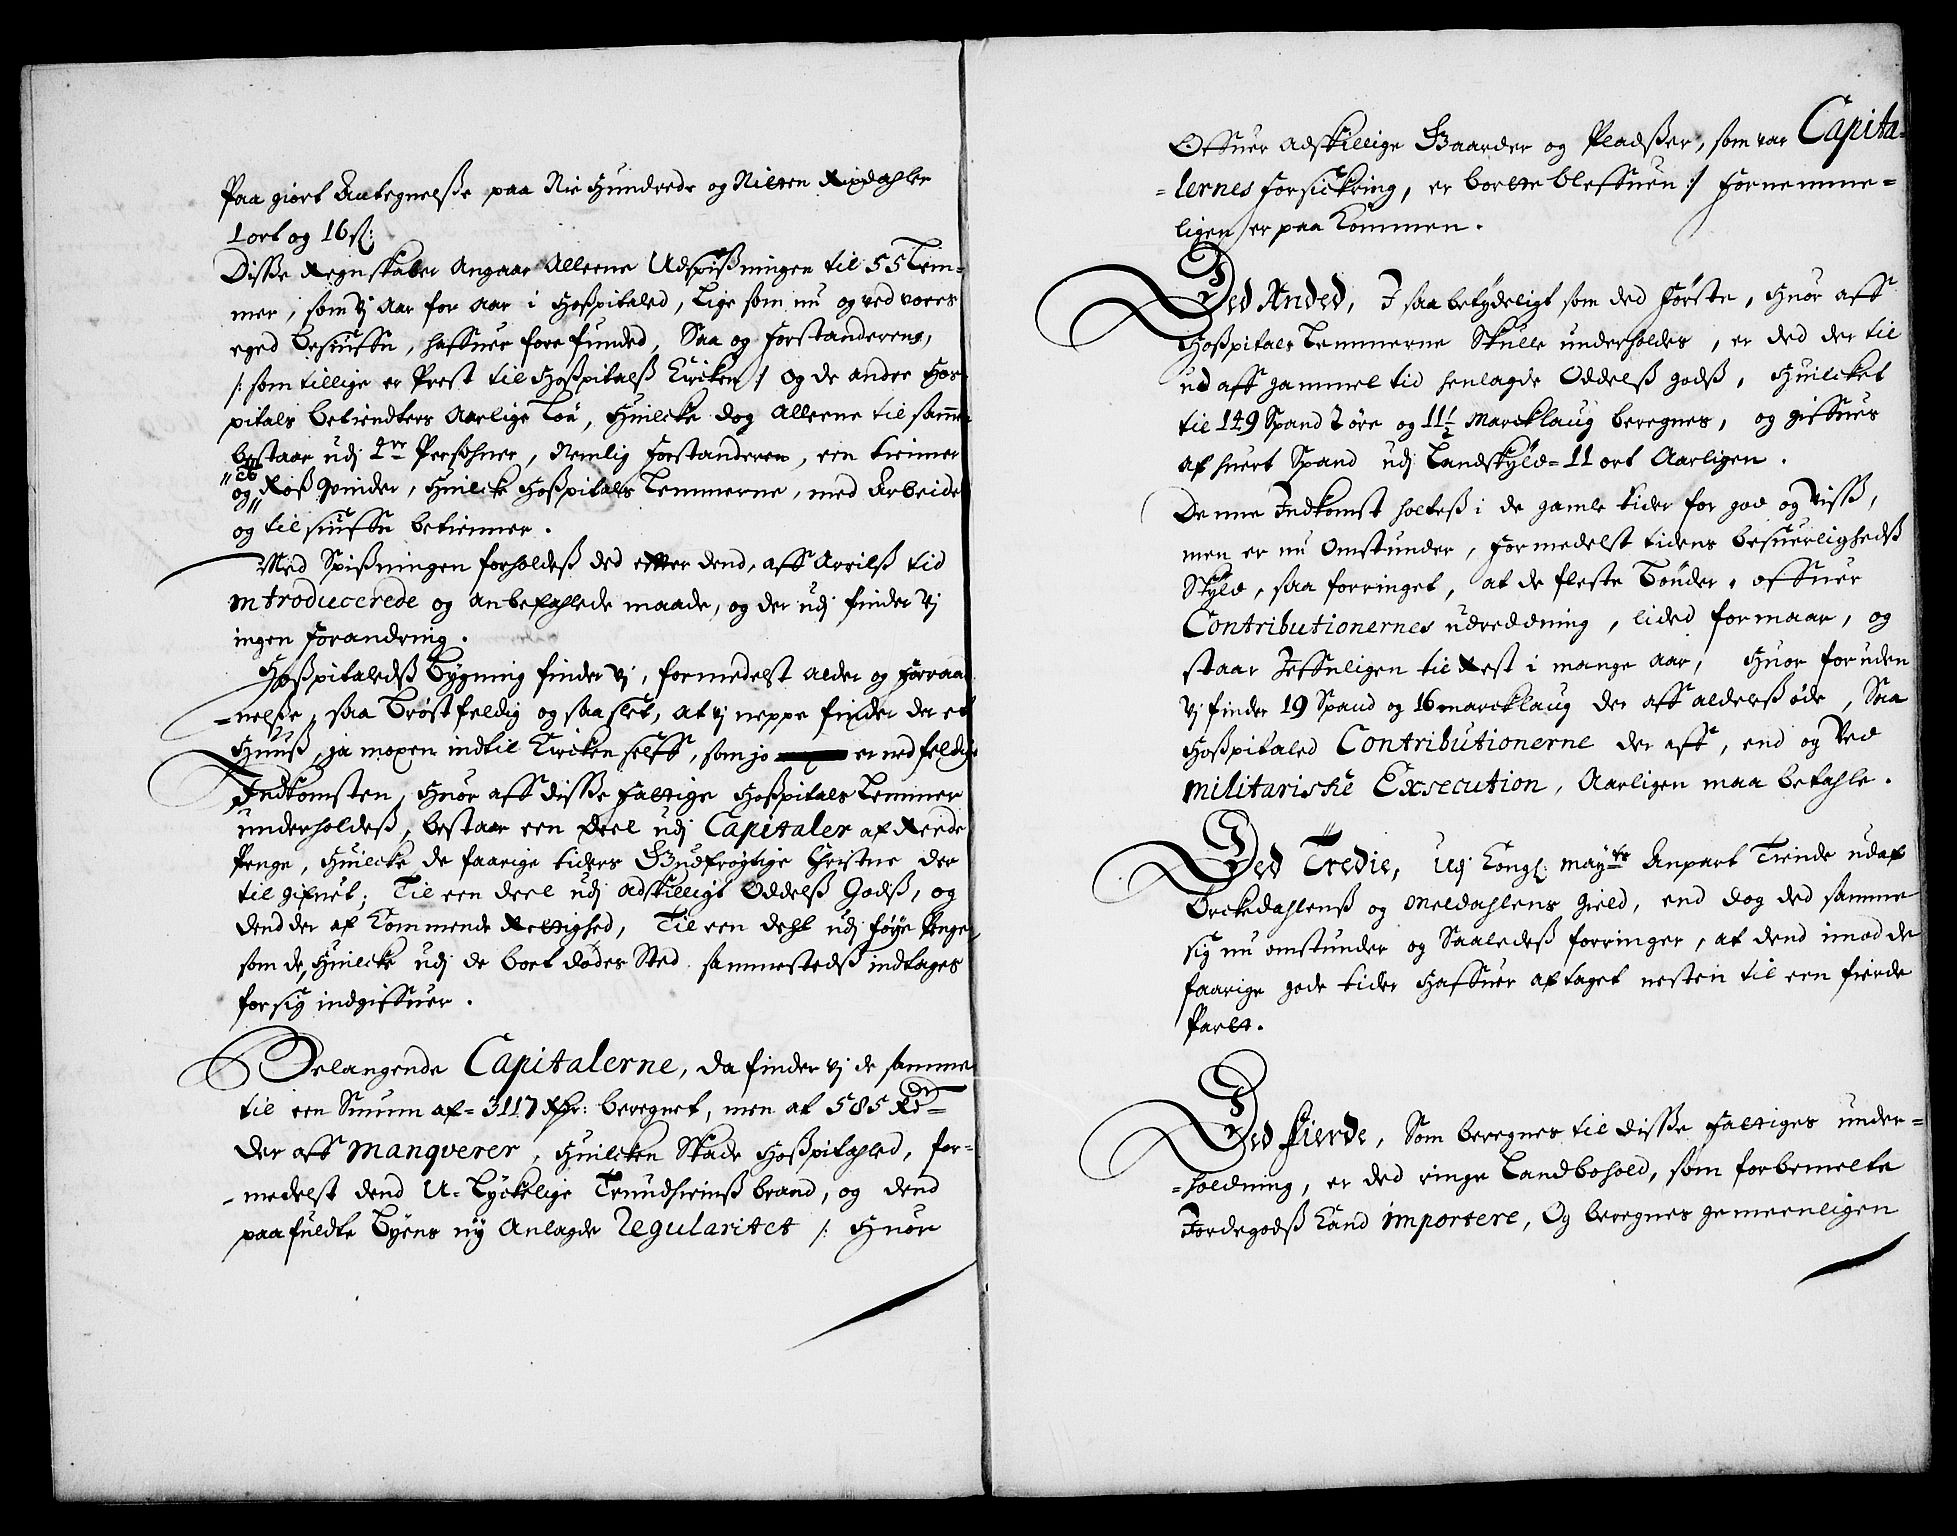 Paa giort Antegnelsße paa Nie Hundrede og Nitten Rixdahler
1 ort og 16 sk:
Disße Regnskaber Angaar Alleene Udspißningen til 55 Lem-
mer, som vj Aar for Aar i Hoßpitaled, Lige som nu og ved vores
eged besiufsn, haffuer forefunded, Saa og Forstanderens,
/: som tillige er Prest til Hoßpitalß Kircken :/ og de andre Hos-
pitals betiendters Aarlige Løn, Huilcke dog Alleene til samme
bestaar udj 4re Persohner, Nemlig Forstanderen, een tiener
og Røßqvinder, Huilcke Hoßpitals Lemmerne, med Arbeide
og tilsiufsn betienner.
Med Spißningen forholdeß ded efter dend, aff Arrilß tid
introducerede og anbefahlede maade, og der udj finder vj
ingen forandring.
Hoßpitaledß Bÿgning finder vj, formedelst alder og Forraad-
nelße, saa Brøstfeldig og saa slet, at vj neppe finder der et
Huuß, ja moxen indtil Kircken selff, som jo er nedfeldig
Indkomsten, Huor aff disße fattige Hoßpitals Lemmer
underholdeß, bestaar een deel udj Capitaler af Rende
Penge, Huilcke de faarige tiders Gudfrøgtige Christne der
til gifuet; Til een deel udj adskilligt Oddelß Godß, og
dend der af Kommende Rettighed, Til een dehl udj føÿe Penge,
som de, Huilcke udj de bort dødes Sted sammestedß indtages
for sig indgiffuer.
Belangende Capitalerne, da finder vj de samme
til een Summ af = 3117 Rdr: beregnet, men at 585 Rdr =
der aff manqverer, Huilcken Skade Hoßpitahled, for-
medelst dend U-Lÿckelige Trundhiemß brand, og dend
paafuldte Bÿens nÿ Anlagde Regularitet /: Huor
Offuer adskillige Gaarder og Pladßer, som var Capita-
lernes forsickring, er bortte bleffuen :/ fornemme-
ligen er paa Kommen.
Ded Anded, J saa betÿdeligt som ded Første, Huor aff
Hoßpitals Lemmerne Skulle underholdes, er ded der til
ud aff gammel tid henlagde Oddelß godß, Huilcket
til 149 Spand 2 øre og 11½ Marcklaug beregnes, og giffues
af huert Spand udj Landskÿld = 11 ort Aarligen.
Denne Indkomst holteß i de gamle tider for god og visß,
men er nu omstunder, formedelst tidens besuerlighedß
Skÿld, saa forringet, at de fleste Bønder, offuer
Contributionernes udreedning, lided formaar, og
staar Jeffnligen til Rest i mange Aar, Huor foruden
vj finder 19 Spand og 16 marcklaug der aff alderß øde, Saa
Hoßpitaled Contributionerne der aff, end og Ved
militariske Exsecution, Aarligen maa betahle.
Ded Tredie, Udj Kongl: maÿtz Anpart Tiende udaf
Orckedahlenß og Meldahlens gield, end dog ded samme
sig nu omstunder og Saaledeß forringer, at dend imod de
faarige gode tider Haffuer aftaget nesten til een fierde
Partt.
Ded fierde, Som beregnes til disße Fattiges under-
holdning, er ded ringe Landbohold, som forbemelte
Jordegodß Kand importere, Og beregnes gemeenligen